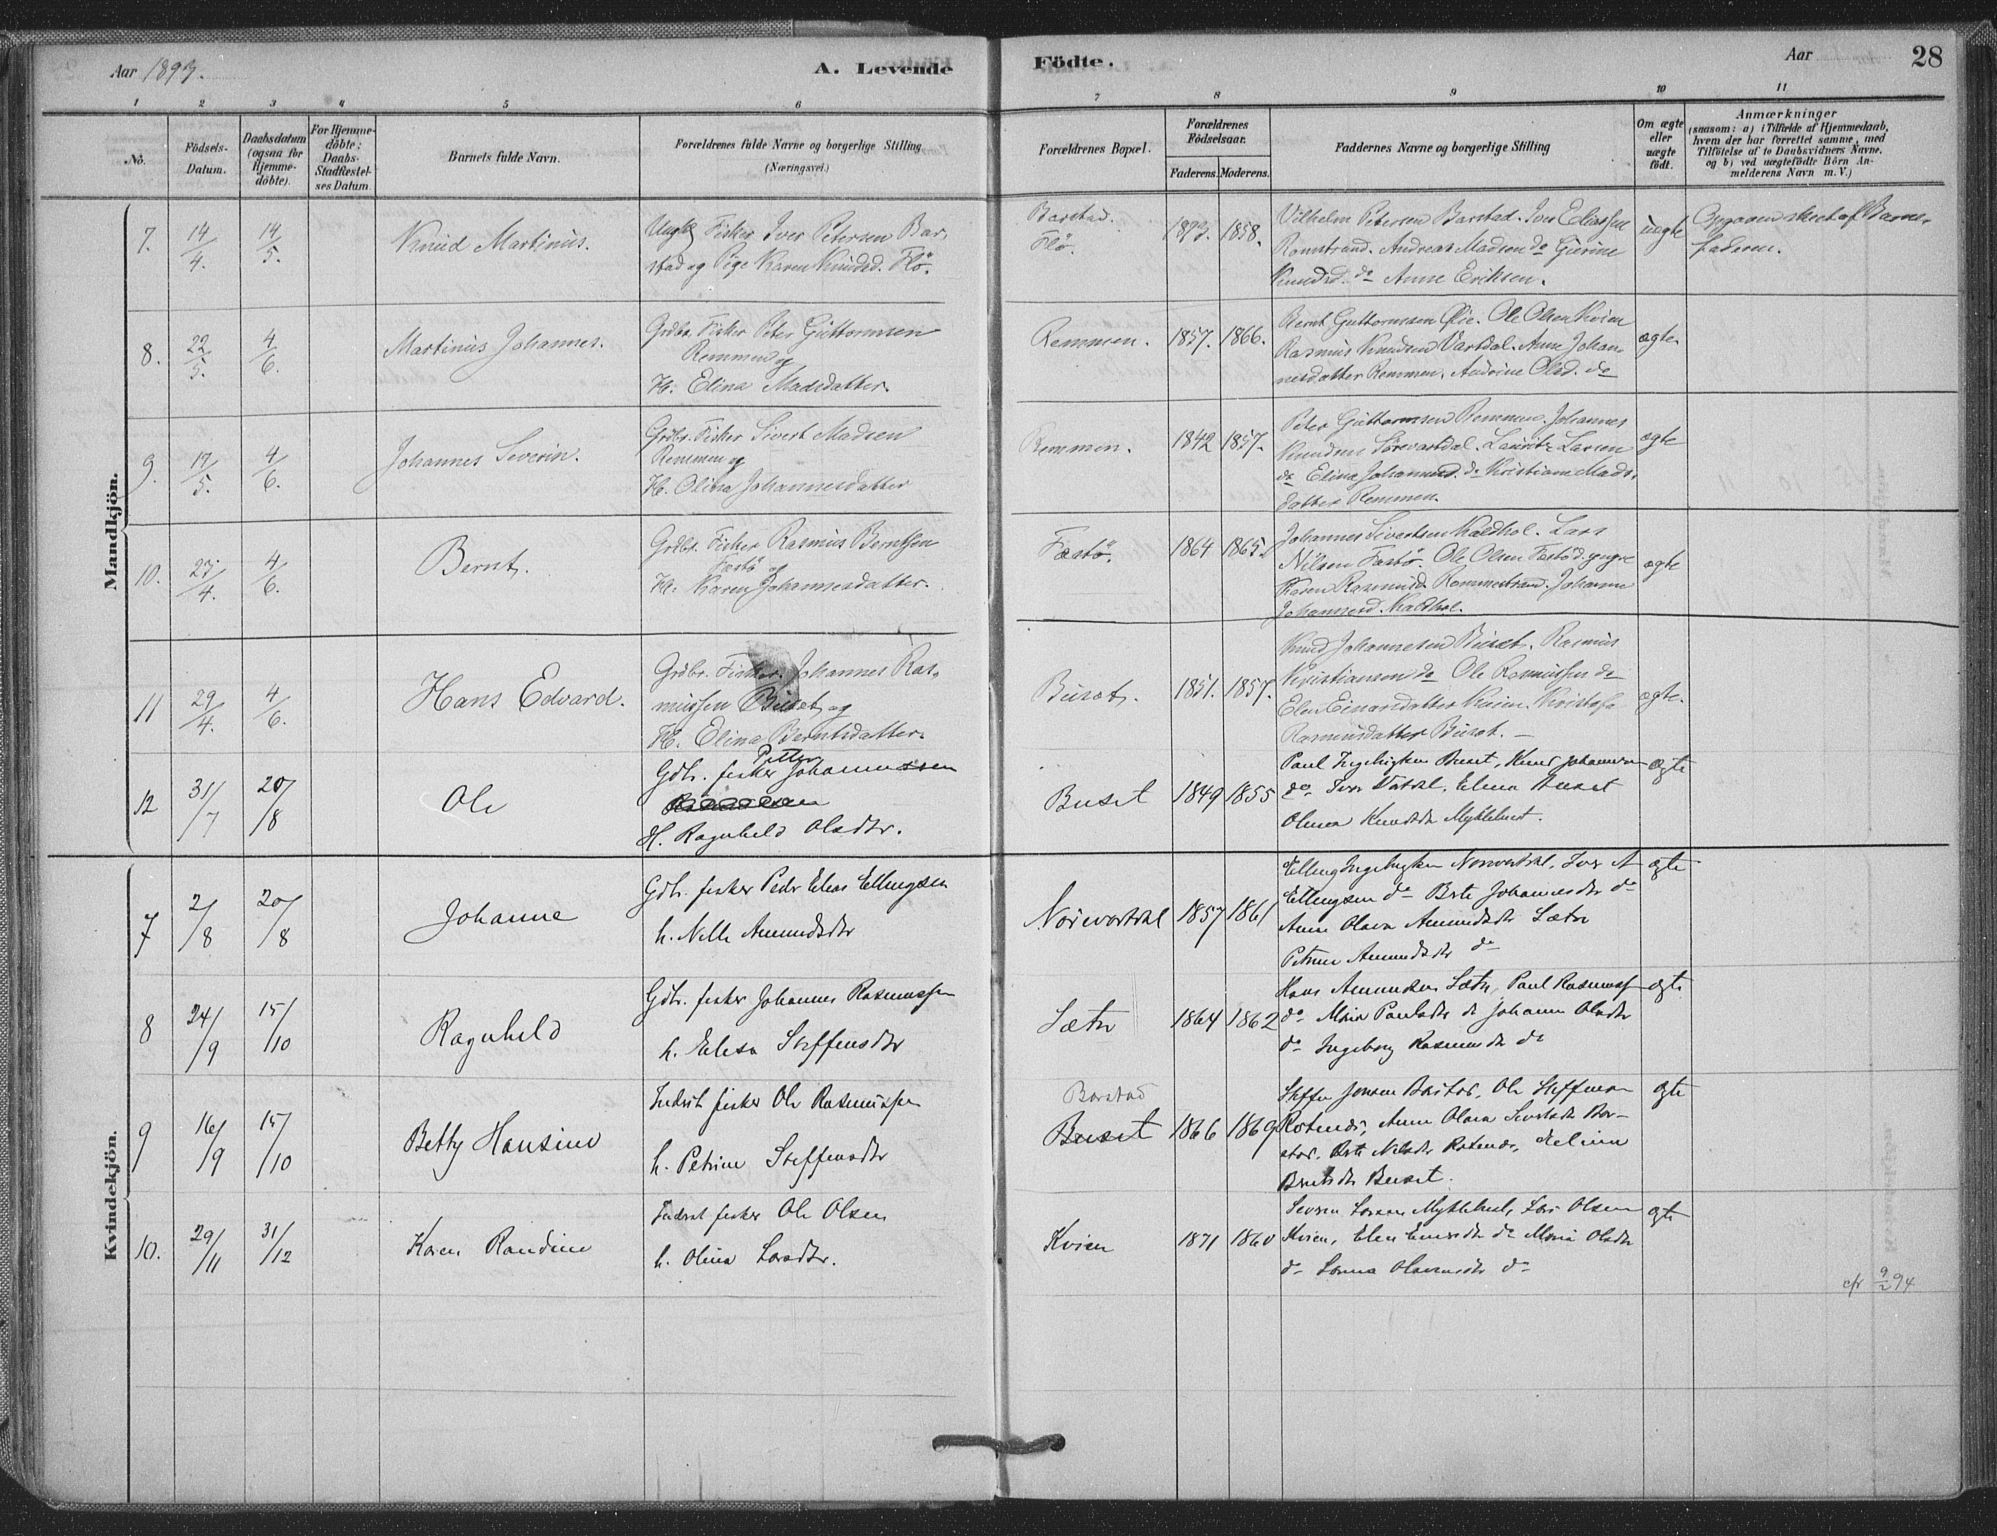 Aar 1893.
A. Levende
Födte.
Aar
28
1 2 3 4 5 6 7 8 9 10 11
No.
Födsels-
Datum.
Daabsdatum
(ogsaa for
Hjemme-
döbte).
For Hjemme-
döbte:
Daabs-
Stadfæstel-
ses Datum
Barnets fulde Navn.
Forældrenes fulde Navne og borgerlige Stilling
(Næringsvei.)
Forældrenes Bopæl.
Forældrenes
Födselsaar.
Faderens. Moderens.
Faddernes Navne og borgerlige Stilling
Om ægte
eller
uægte
födt.
Anmærkninger
(saasom: a) i Tilfælde af Hjemmedaab,
hvem der har forrettet samme, med
Tilföielse af to Daabsvidners Navne,
og b) ved uægtefödte Börn An-
melderens Navn m. V.)
Mandkjön.
7. 14/4. 14/5. Knud Martinus.
Ungk. Fisker Iver Petersen Bar-
stad og Pige Karen Knudsd. Flö.
Barstad.
Flö.
1858.
Vilhelm Petersen Barstad. Iver Eliassen
Romstrand. Andreas Madsen do Gurine
Knudsd. do Anne Eriksen.
uægte
Opgaven skeet af Barne-
faderen.
8. 22/5. 4/6. Martinus Johannes.
Grdbr. Fisker Peter Guttormsen
Remmen og
H. Elina Madsdatter.
Remmen. 1857. 1866.
Bernt Guttormsen Ole Olsen Kvien
Rasmus Knudsen Vartdal. Anne Johan-
nesdatter Remmen. Olsd. do
ægte.
9. 17/5. 4/6. Johannes Severin.
Grdbr. Fisker Sivert Madsen
Remmen og
H. Olina Johannesdatter
Remmen. 1842 1857.
Peter Guttormsen Remmen. Johannes
Knudsen Sörevartdal. Lauritz Larsen
do Elina Johannesd. do Kristiane Mads-
datter Remmen.
ægte
10. 27/4. 4/6. Bernt.
Grdbr. Fisker Rasmus Berntsen
Fæstö og
H. Karen Johannesdatter.
Fæstö. 1864 1865.
Johannes Sivertsen Kaldhol. Lars
Nilsen Fæstö. Ole Olsen Fæstö d. yngre
Karen Rasmusd. Romestrand. Johanne
Johannesd. Kaldhol.
ægte
11 29/4. 4/6. Hans Edvard.
Grdbr. Fisker Johannes Ras-
mussen Buset og
H. Elina Berntsdatter.
Buset. 1851. 1857.
Knud Johannesen Buset. Rasmus
Kristiansen do Ole Rasmussen do
Elen Einarsdatter Kvien. Kristofa
Rasmusdatter Buset. —
ægte.
12 31/7 20/8 Ole
Petter
Gdbr. fisker Johannessen
H. Ragnhild Olsdtr.
Buset 1849 1855
Paul Ingebrigtsen Buset, Knud Johannesen
do Iver Vartdal, Elena Buset
Olina Knudsdtr Myklebust.
ægte
Kvindekjön.
7 2/8 20/8 Johanne
Gdbr. fisker Peder Elias Ellingsen
h. Nelle Amundsdtr
Nörevartdal 1857 1861
Elling Ingebrigtsen Norvartdal, Iver A
Ellingsen do Brte Johannesdtr do
Anne Olava Amundsdtr Sætr
Petrine Amundsdtr do
ægte
8 24/9 15/10 Ragnhild
Gdbr. fisker Johannes Rasmussen
h. Elisa Steffensdtr
Sætr 1864 1862
Hans Amundsen Sætr, Paul Rasmuss
do Maria Paulsdtr do Johanne Olsdtr
do Ingeborg Rasmusdtr do
ægte
9 16/9 15/10 Betty Hansine
Inderst fisker Ole Rasmussen
h. Petrine Steffensdtr
Barstad
Buset 1866 1869
Steffen Jonsen Barstad, Ole Steffensen
Rotenes, Anne Olava Sivertsdtr Bar-
stad, Brte Nilsdtr Rotenes, Elina
Berntsdtr Buset.
ægte
10. 29/11 31/12 Karen Randine
Inderst fisker Ole Olsen
h. Olina Larsdtr.
Kvien 1871 1860
Severin Larsen Myklebust, Lars Olsen
Kvien, Elen Einarsdtr do Maria Olsdtr
do do
ægte
cfr 9/2 94